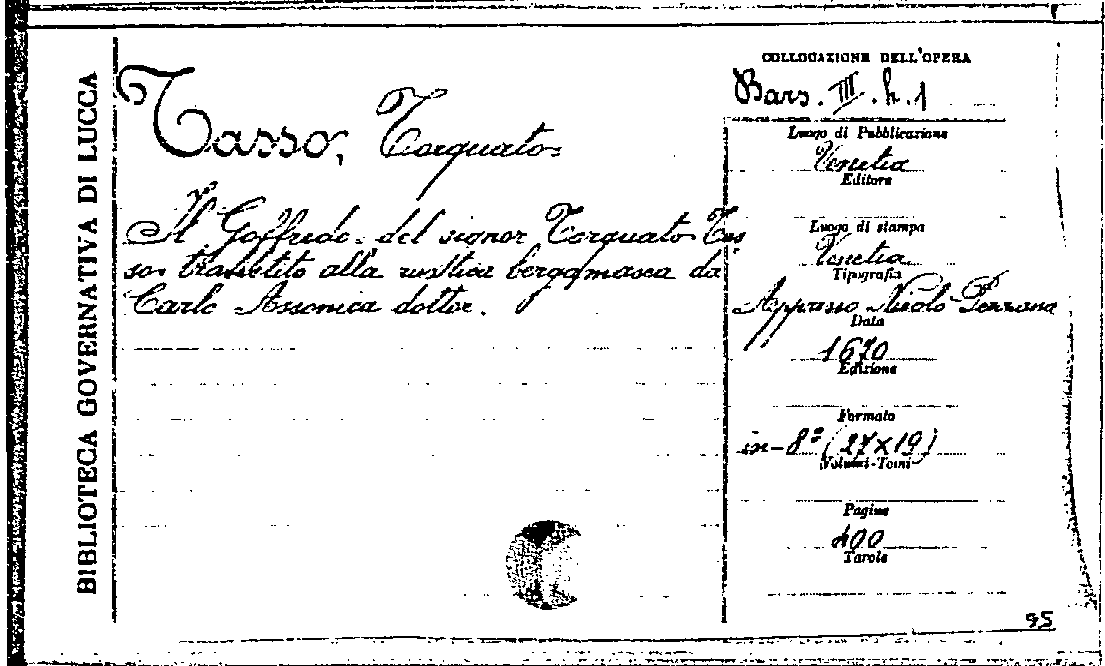 BIBLIOTECA GOVERNATIVA DI LUCCA
Tasso, Torquato
Il Goffredo del signor Torquato Tas
so travestito alla rustica bergamasca da
Carlo Assonica dottor.
COLLOCAZIONE DELL'OPERA
Bars. III. h. 1
Luogo di Pubblicazione
Venetia
Editore
Luogo di stampa
Venetia
Tipografia
Appresso Nicolo Pezzana
Data
1670
Edizione
Formato
in-8º (27×19)
Volumi-Tomi
Pagine
400
Tavole
95